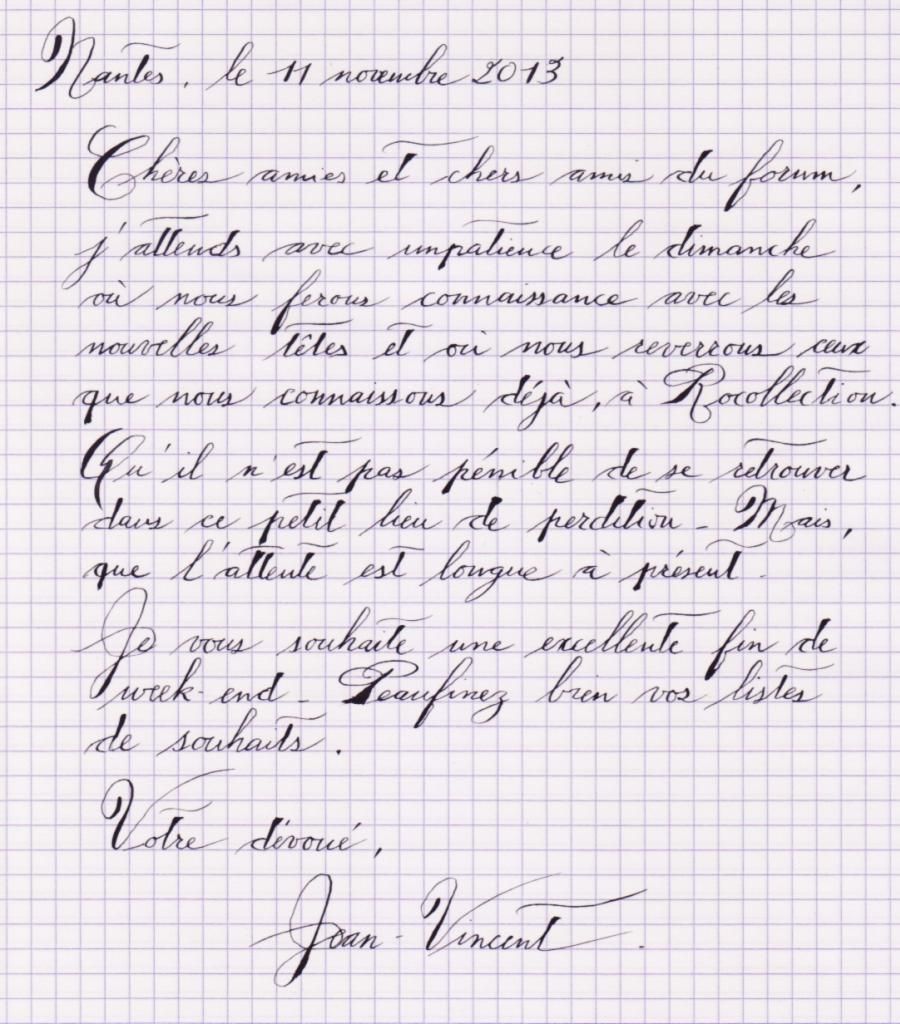 Nantes, le 11 novembre 2013
Chères amies et chers amis du forum,
j'attends avec impatience le dimanche
où nous ferons connaissance avec les
nouvelles têtes et où nous reverrons ceux
que nous connaissons déjà, à Rocollection.
Qu'il n'est pas pénible de se retrouver
dans ce petit lieu de perdition. Mais,
que l'attente est longue à présent.
Je vous souhaite une excellente fin de
week-end. Peaufinez bien vos listes
de souhaits.
Votre dévoué,
Jean-Vincent.